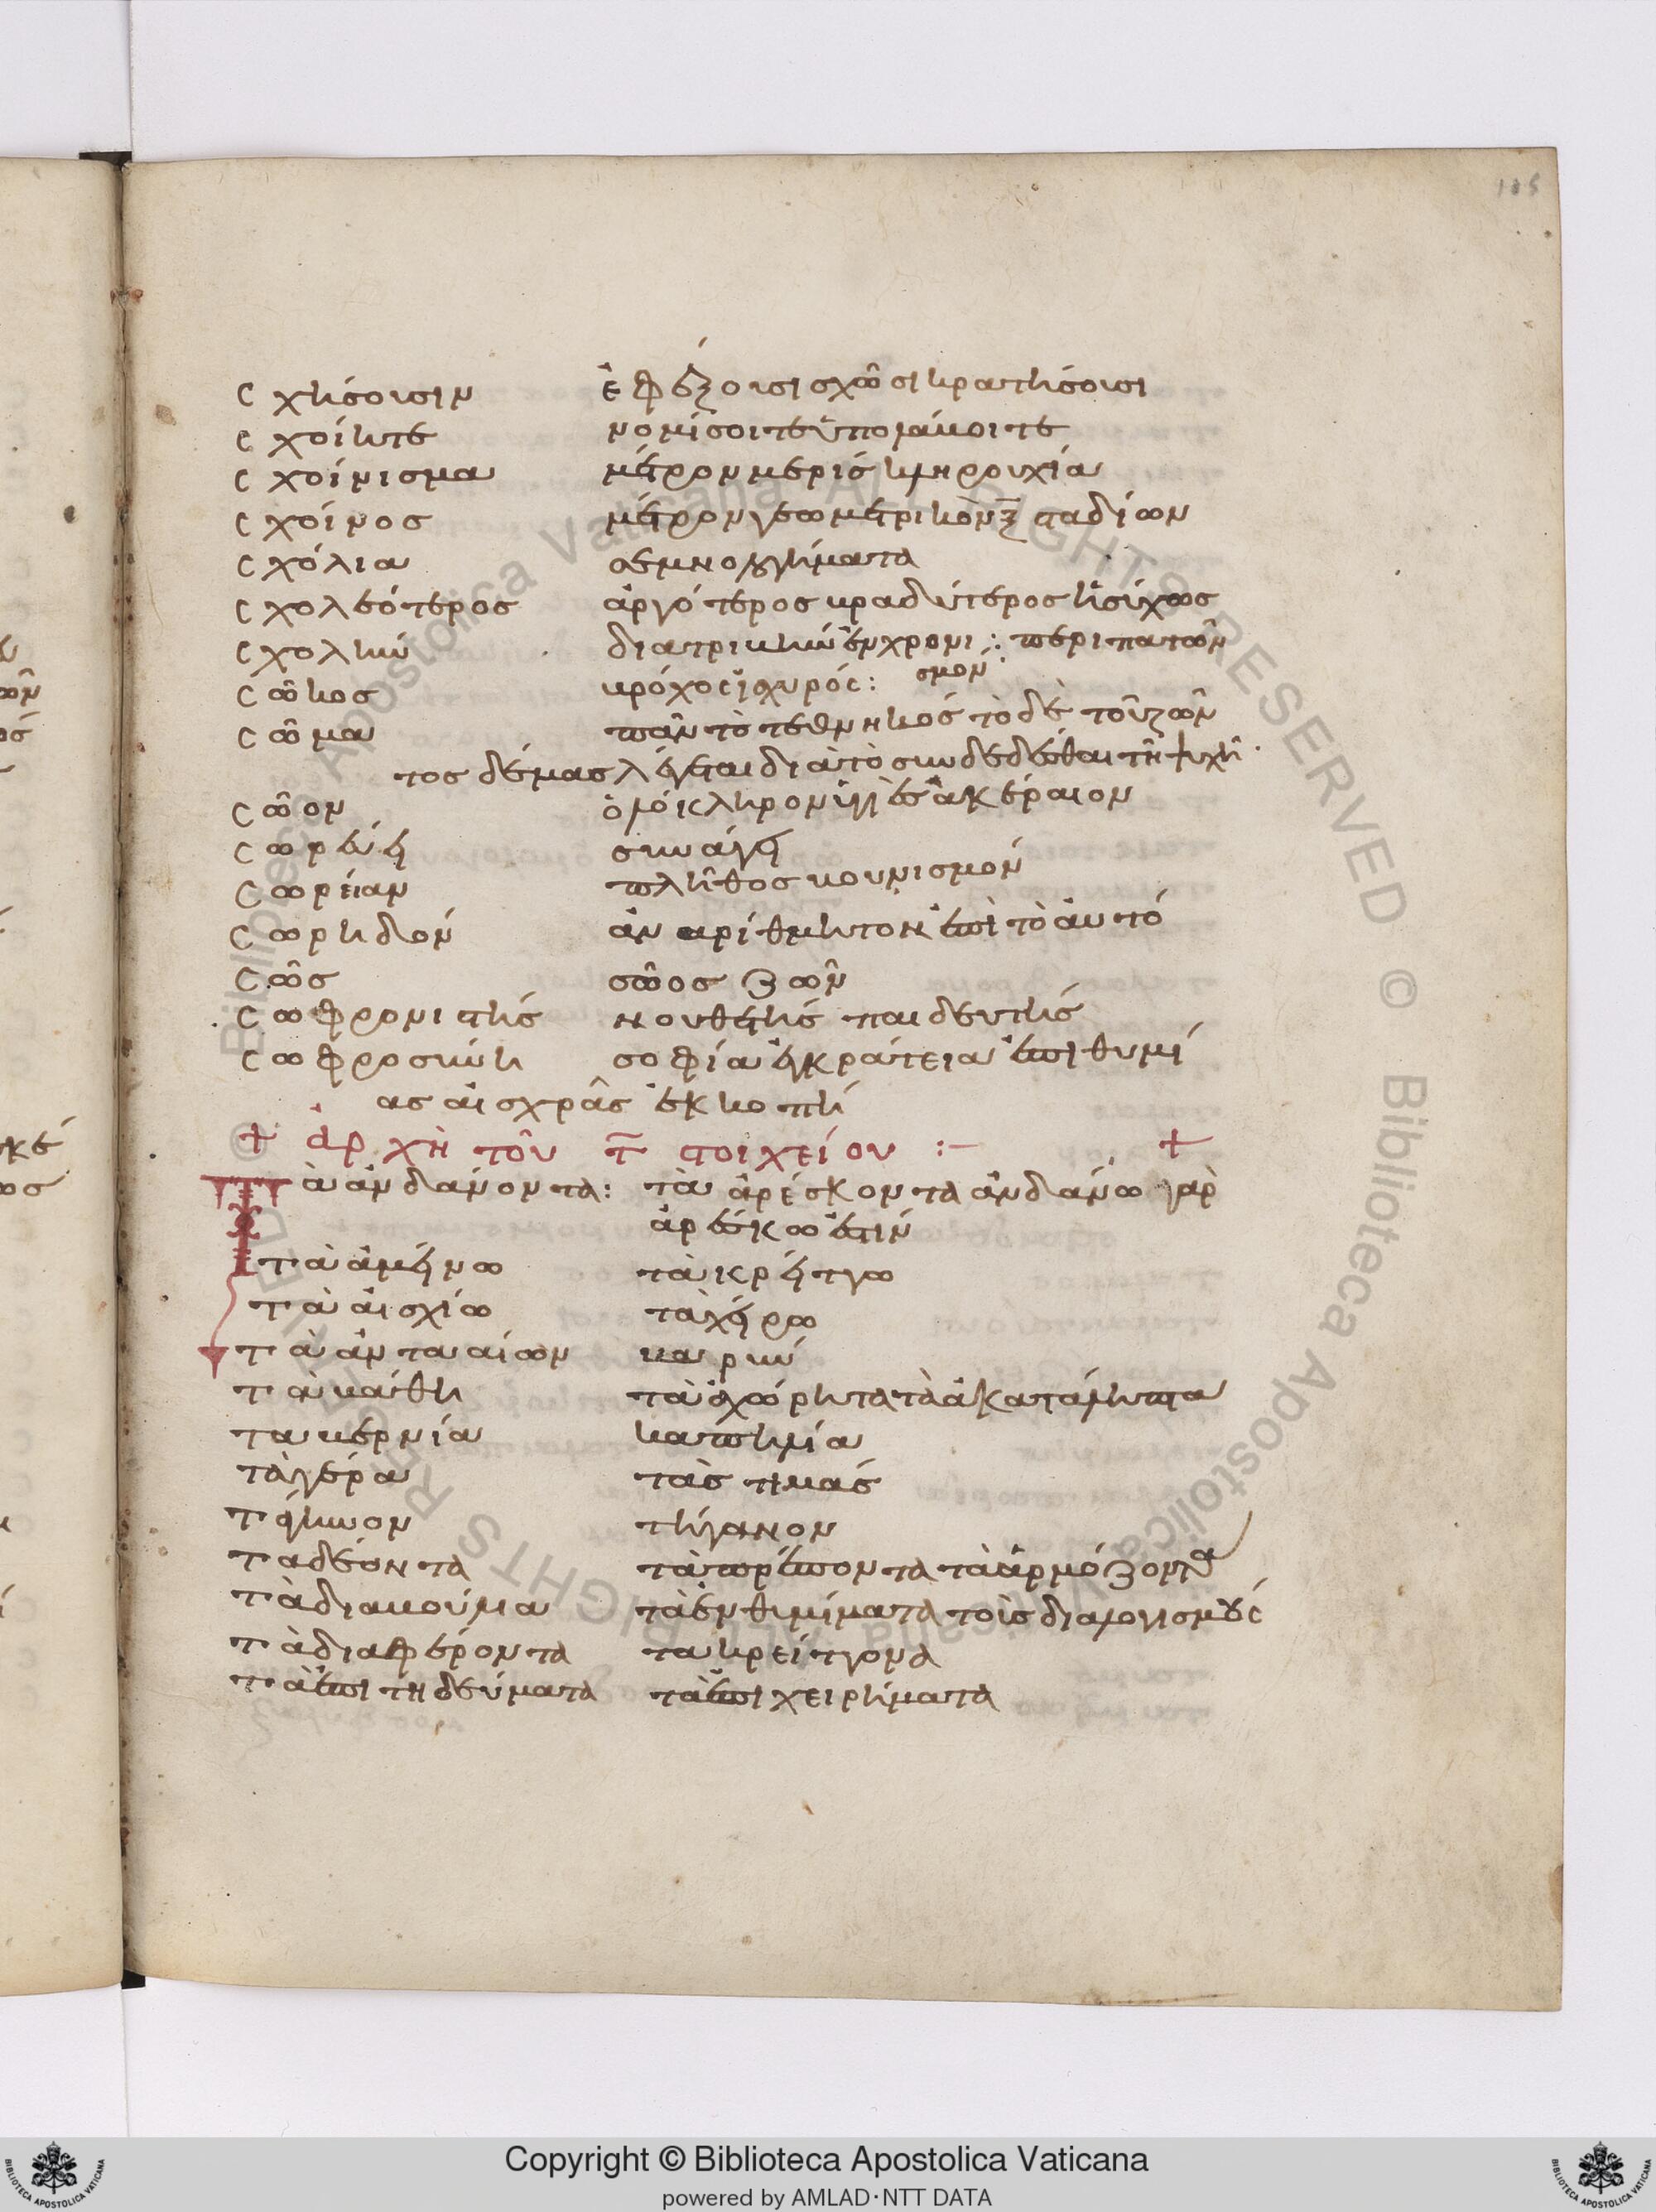 185
σχήσουσιν ἐφέξουσι σχῶσι κρατήσουσι
σχοίητε νομίσοιτε ὑπολάβοιτε
σχοίνισμα μέτρον μερίς κληρουχία
σχοίνος μέτρον γεωμετρικὸν ξ σταδίων
σχόλια σεμνολογήματα
σχολεότερος ἀργότερος βραδύτερος ἡσύχως
σχολήν διατριβήν ἐν χρονι : περιπατῶν
σῶκος βρόχος ἰσχυρός: σμον
σῶμα πᾶν τὸ τεθνηκός τὸ δὲ τοῦ ζῶν
τος δέμας λέγεται διὰ τὸ συνδεδέσθαι τῇ ψυχῇ
σῶον ὁλόκληρον ὑγιὲς ἀκέραιον
σωρεύει συνάγει
σωρείαν πλῆθος βουνισμόν
σωρηδόν ἀναρίθμητον ἐπὶ τὸ αὐτό
σῶς σῶος ζῶν
σωφρονιστής νουθετής παιδευτής
σωφροσύνη σοφία ἐγκράτεια ἐπιθυμί
ας αἰσχρᾶς ἐκκοπή
+ ἀρχὴ τοῦ τ στοιχείου :– +
Τὰ ἁνδάνοντα: τὰ ἀρέσκοντα ἁνδάνω γὰρ
ἀρέσκω ἐστίν
τὰ ἀμείνω τὰ κρείττω
τὰ αἰσχίω τὰ χείρω
τὰ ἀντααίων
τὰ βάθη τὰ ἀχώρητα τὰ ἀκατάληπτα
ταβερνία καπηλία
τὰ γέρα τὰς τιμάς
τάγηνον τήγανον
τὰ δέοντα τὰ πρέποντα τὰ ἁρμόζοντα
τὰ διαβούλια τὰ ἐνθυμίματα τοὶς διαλογισμούς
τὰ διαφέροντα τα κρείττονα
τὰ ἐπιτηδεύματα τὰ ἐπιχειρήματα
Copyright © Biblioteca Apostolica Vaticana
powered by AMLAD·NTT DATA